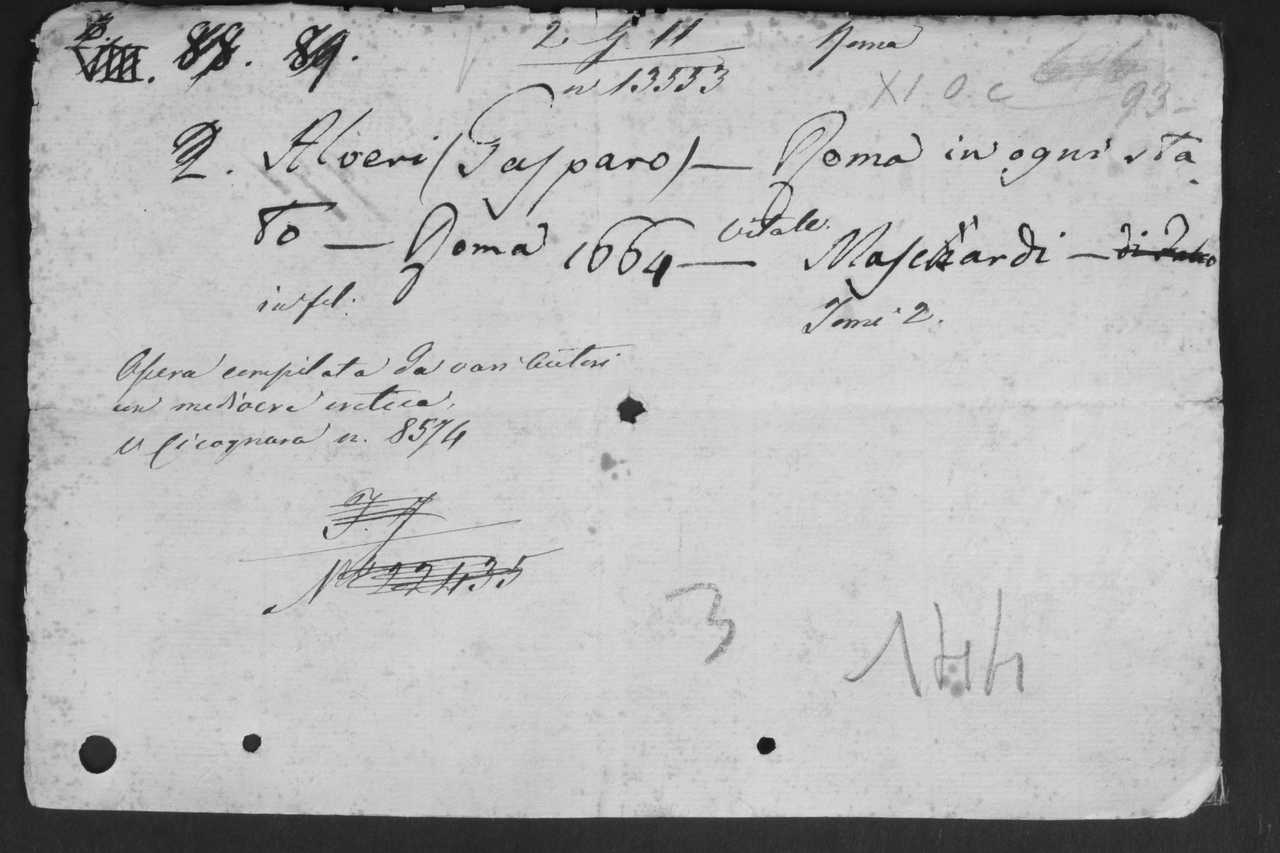 VIII. 88. 89.
2 G 11
nº 13553
Roma
XI O. c
93-
2. Alveri (Gasparo) — Roma in ogni sta-
to — Roma 1664 — Vitale Mascardi —
in fol.
Tomi 2.
Opera compilata da varî Autori
con mediocre critica.
V Cicognara n. 8574
Nº 22435
3
144